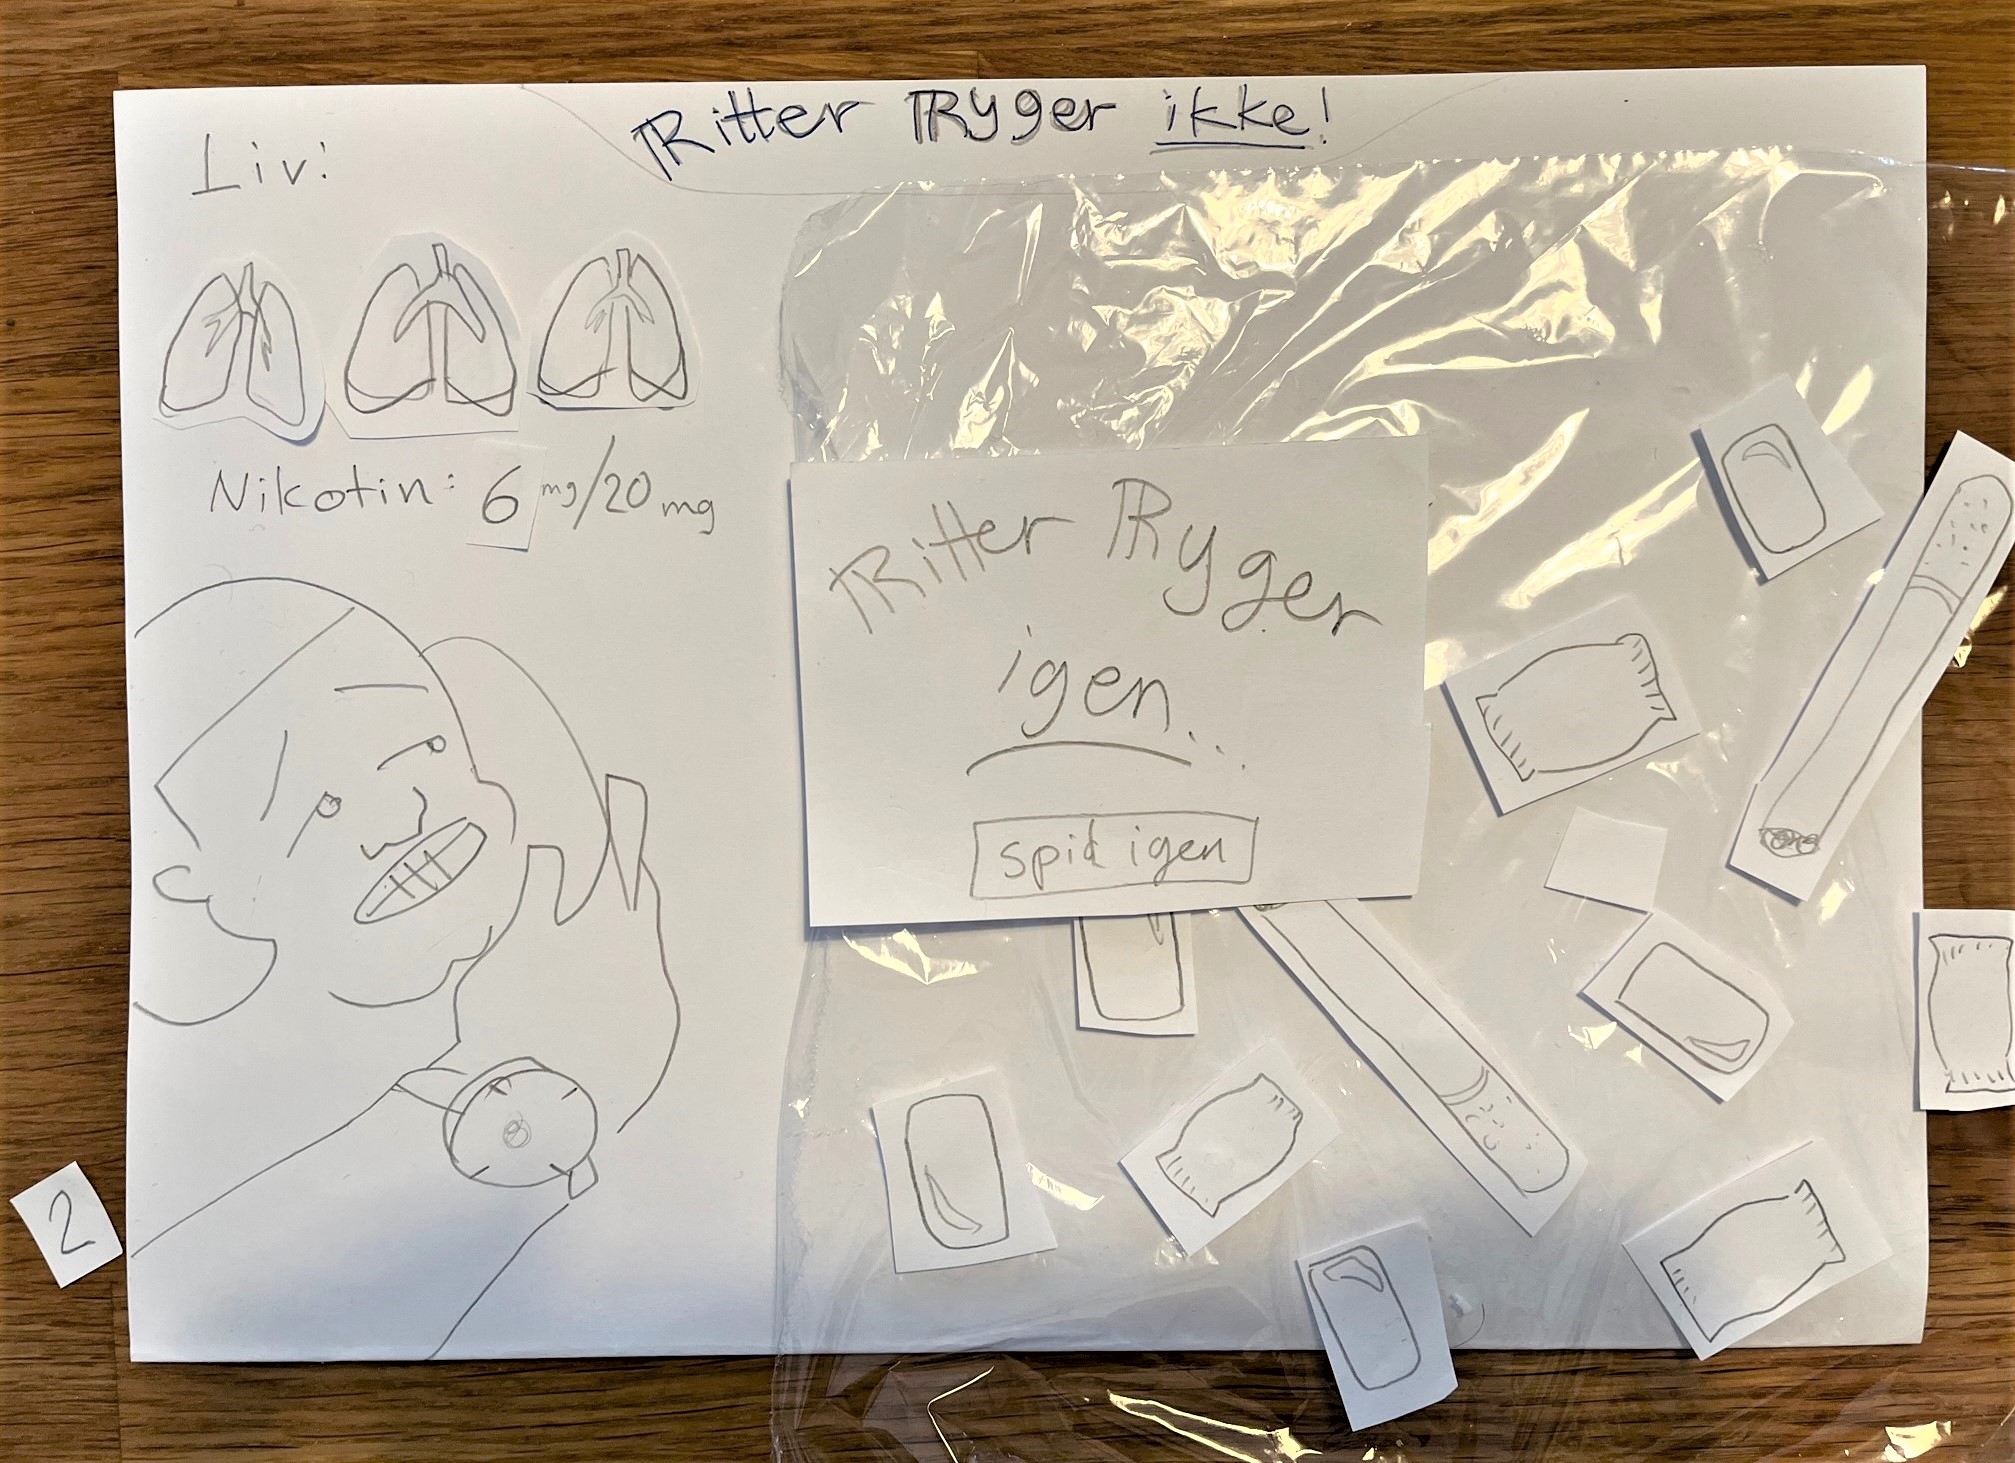 Ritter Ryger ikke!
Liv:
Nikotin: 6 mg/20 mg
Ritter Ryger
igen..
spil igen
2